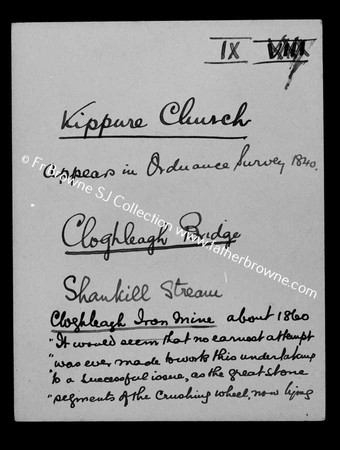 IX VIII
Kippure Church
appears in Ordnance Survey 1840.
Cloghleagh Bridge
Shankill Stream
Cloghleagh Iron Mine about 1860
"It would seem that no earnest attempt
"was ever made to work this undertaking
"to a successful issue, as the great stone
"segments of the Crushing wheel, now lying
© Fr Browne SJ Collection www.fatherbrowne.com